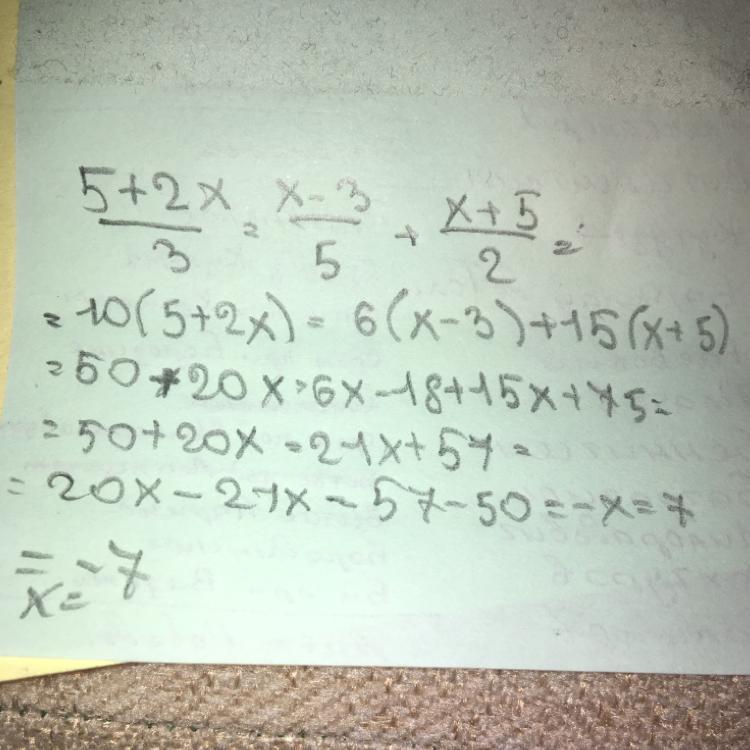 (5+2x)/3 = (x-3)/5 + (x+5)/2 =
= 10(5+2x) = 6(x-3)+15(x+5)
= 50+20x = 6x-18+15x+75 =
= 50+20x = 21x+57 =
= 20x-21x = 57-50 = -x = 7
= x = -7